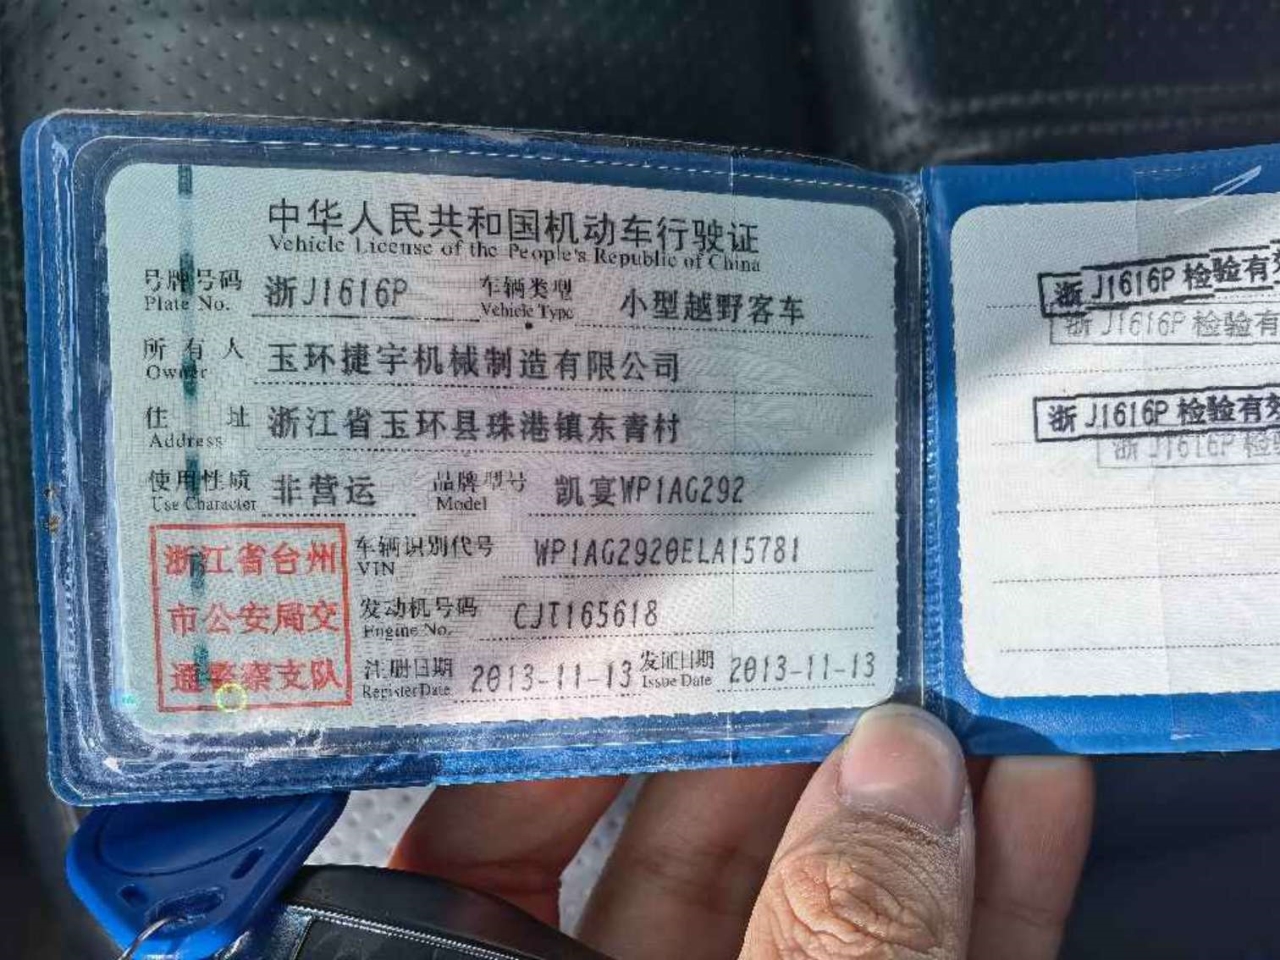 中华人民共和国机动车行驶证
Vehicle License of the People's Republic of China
号牌号码 浙J1616P 车辆类型 小型越野客车
Plate No. Vehicle Type
所有人 玉环捷宇机械制造有限公司
Owner
住址 浙江省玉环县珠港镇东青村
Address
使用性质 非营运 品牌型号 凯宴WP1AG292
Use Character Model
浙江省台州
市公安局交
通警察支队
车辆识别代号 WP1AG2920ELA15781
VIN
发动机号码 CJT165618
Engine No.
注册日期 2013-11-13 发证日期 2013-11-13
Register Date Issue Date
浙J1616P 检验有效
浙J1616P 检验有
浙J1616P 检验有效
浙J1616P 检验